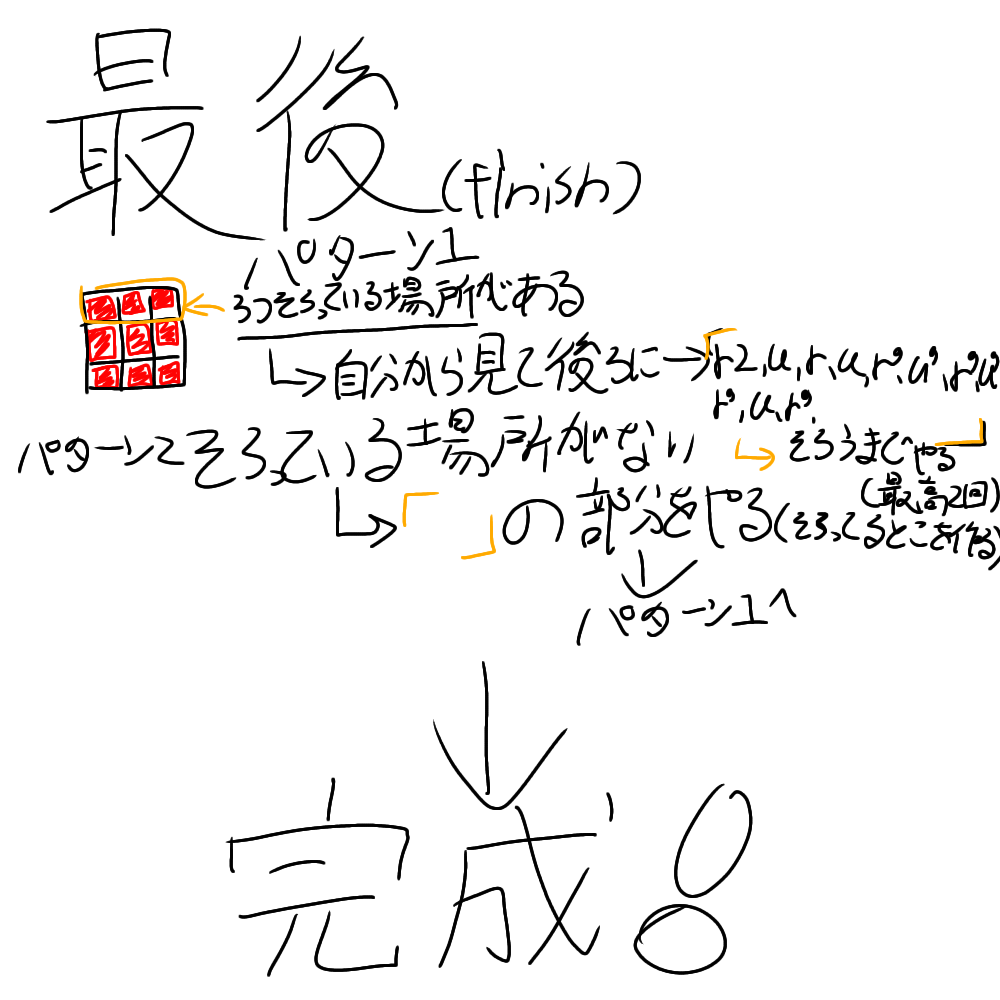 最後(finish)
パターン1
3つそろっている場所がある
↳自分から見て後ろに→「r2,u,r,u,r',u',r',u'
r',u,r'」
↳そろうまでやる
(最高2回)
パターン2そろっている場所がない
↳「 」の部分をやる(そろってるとこを作る)
↓
パターン1へ
↓
完成!